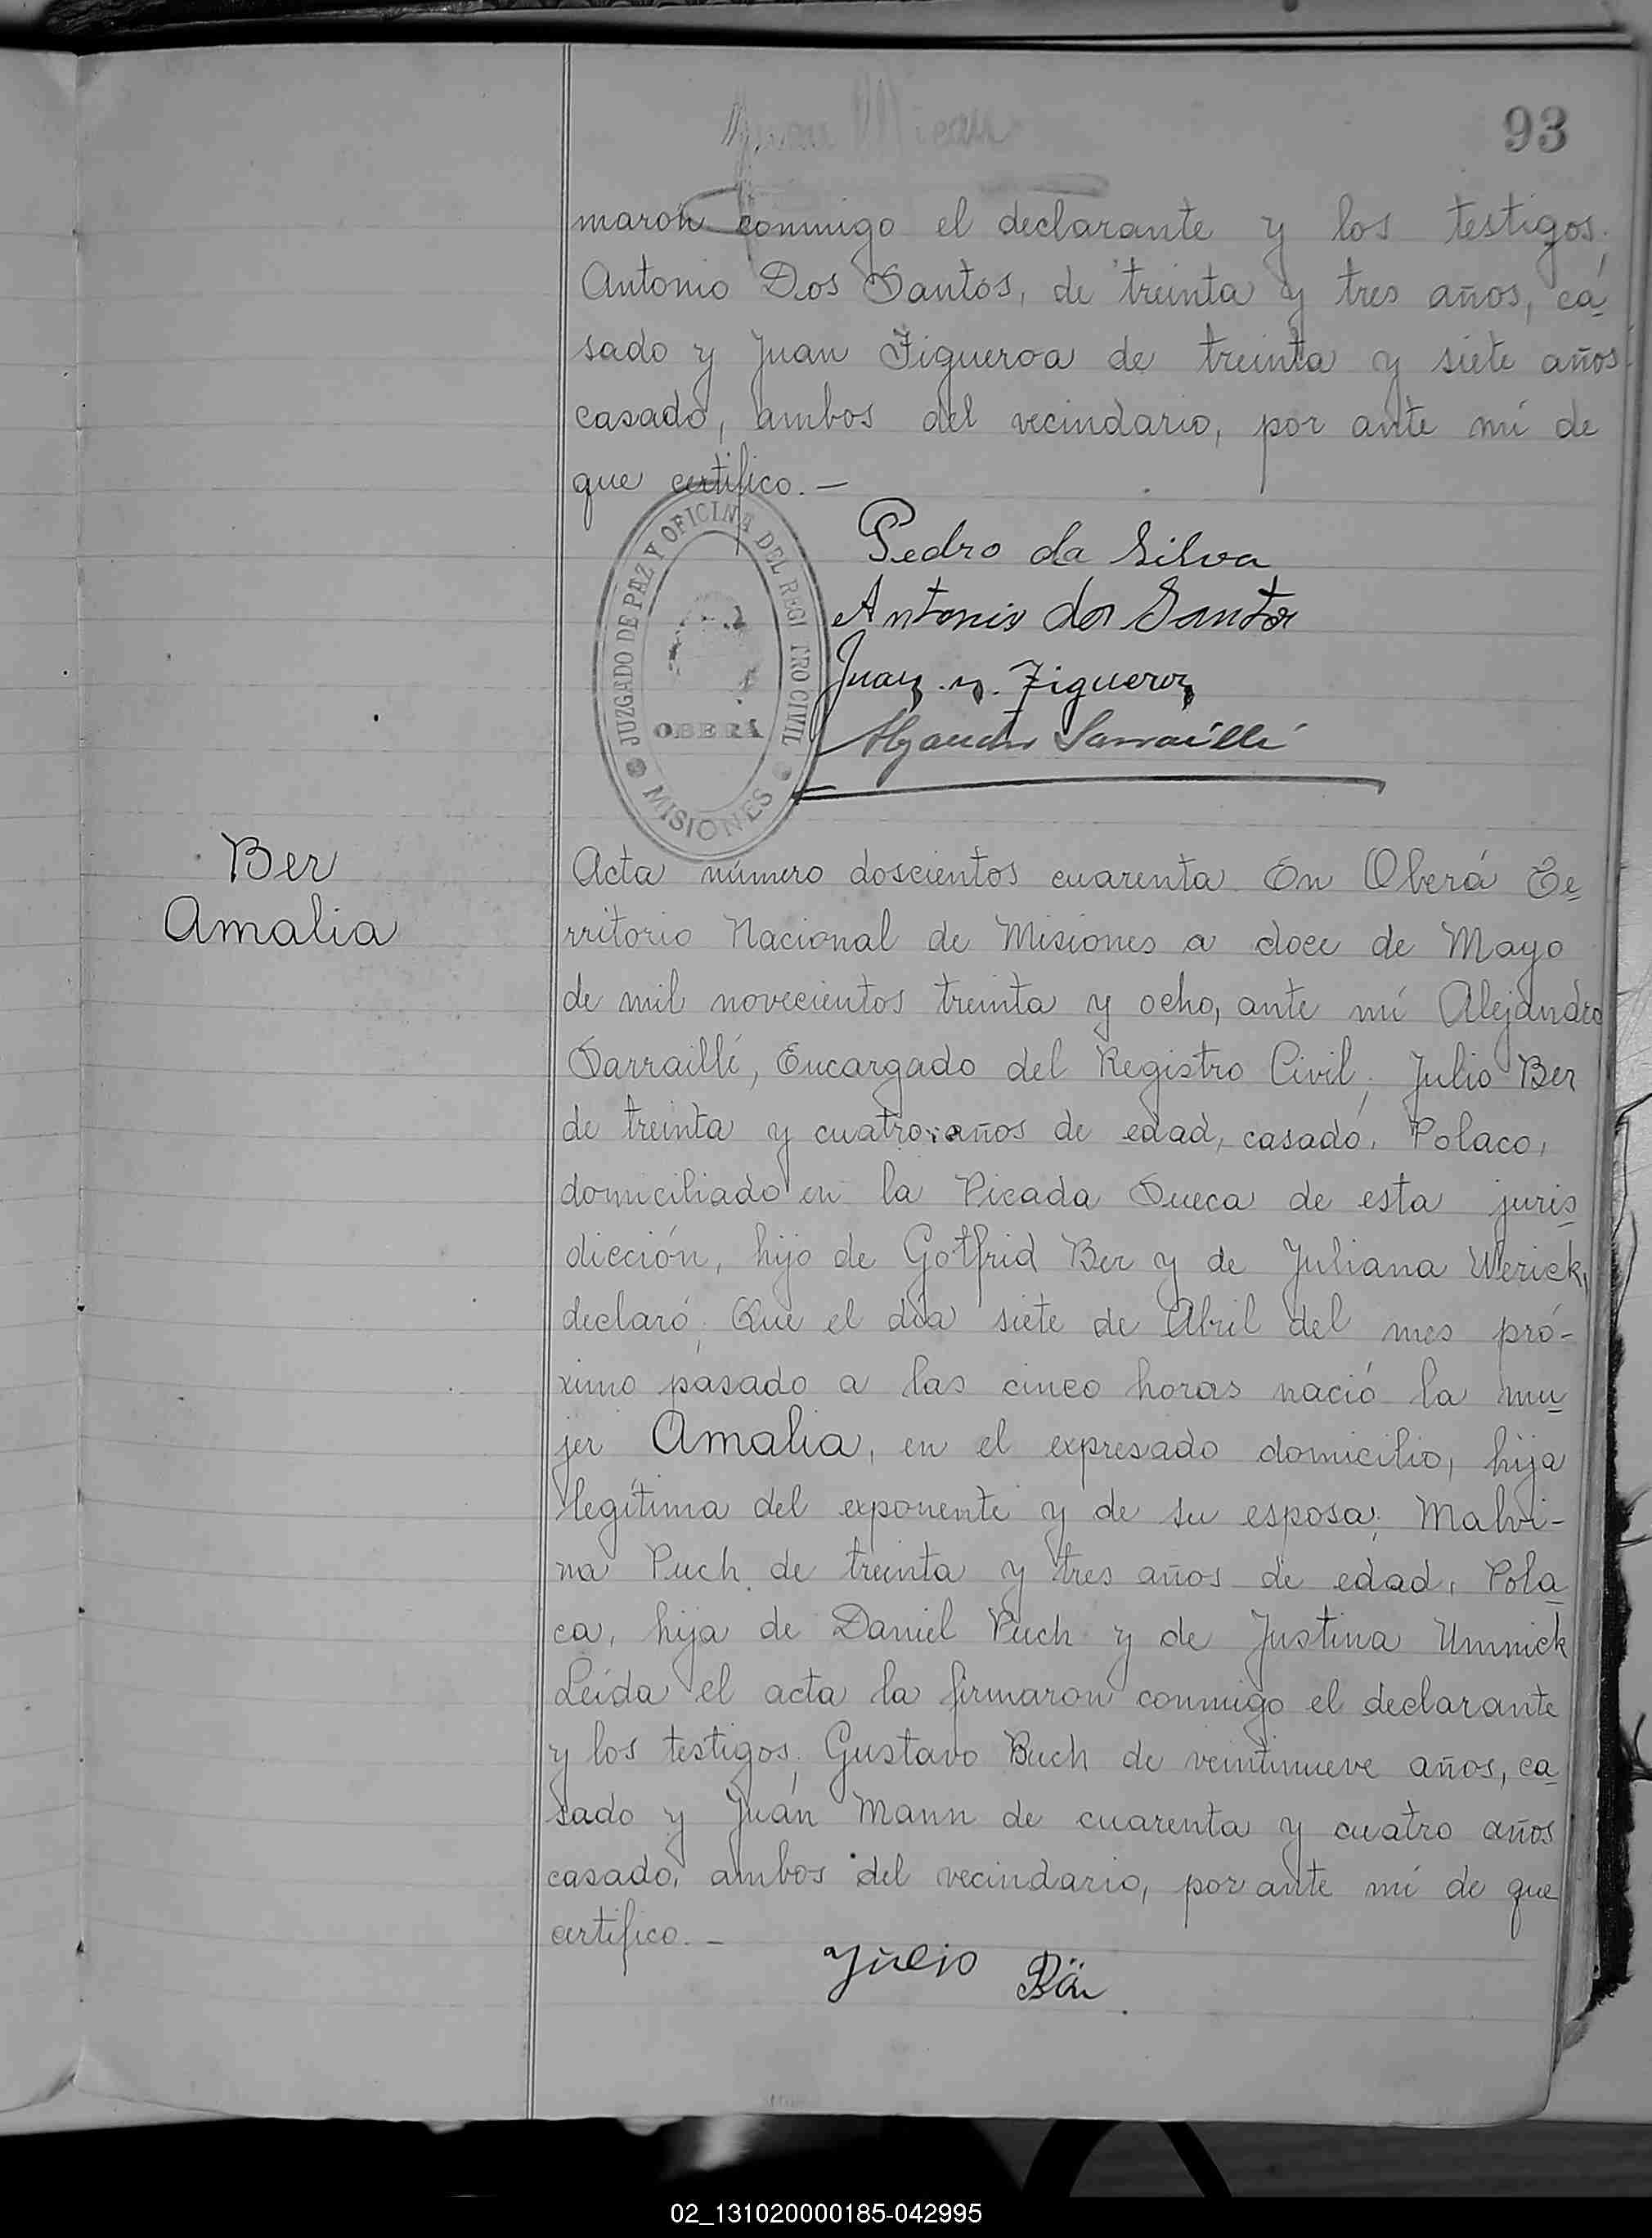 93
maron conmigo el declarante y los testigos;
Antonio Dos Santos, de treinta y tres años, ca
sado y Juan Figueroa de treinta y siete años
casado, ambos del vecindario, por ante mí de
que certifico. —
JUZGADO DE PAZ Y OFICINA DEL REGISTRO CIVIL
OBERÁ
MISIONES
Pedro da Silva
Antonio dos Santos
Juan Figueroa
Alejandro Sarraillé
Ber
Amalia
Acta número doscientos cuarenta. En Oberá Te
rritorio Nacional de Misiones a doce de Mayo
de mil novecientos treinta y ocho, ante mí Alejandro
Sarraillé, Encargado del Registro Civil; Julio Ber
de treinta y cuatro años de edad, casado, Polaco,
domiciliado en la Picada Sueca de esta juris
dicción, hijo de Gotfrid Ber y de Juliana Werick,
declaró; Que el día siete de Abril del mes pró-
ximo pasado a las cinco horas nació la mu
jer Amalia, en el expresado domicilio, hija
legítima del exponente y de su esposa; Malvi-
na Puch de treinta y tres años de edad, Pola
ca, hija de Daniel Puch y de Justina Umnick
Leída el acta la firmaron conmigo el declarante
y los testigos; Gustavo Buch de veintinueve años, ca
sado y Juán Mann de cuarenta y cuatro años
casado, ambos del vecindario, por ante mí de que
certifico. —
Julio Bär
02_131020000185-042995